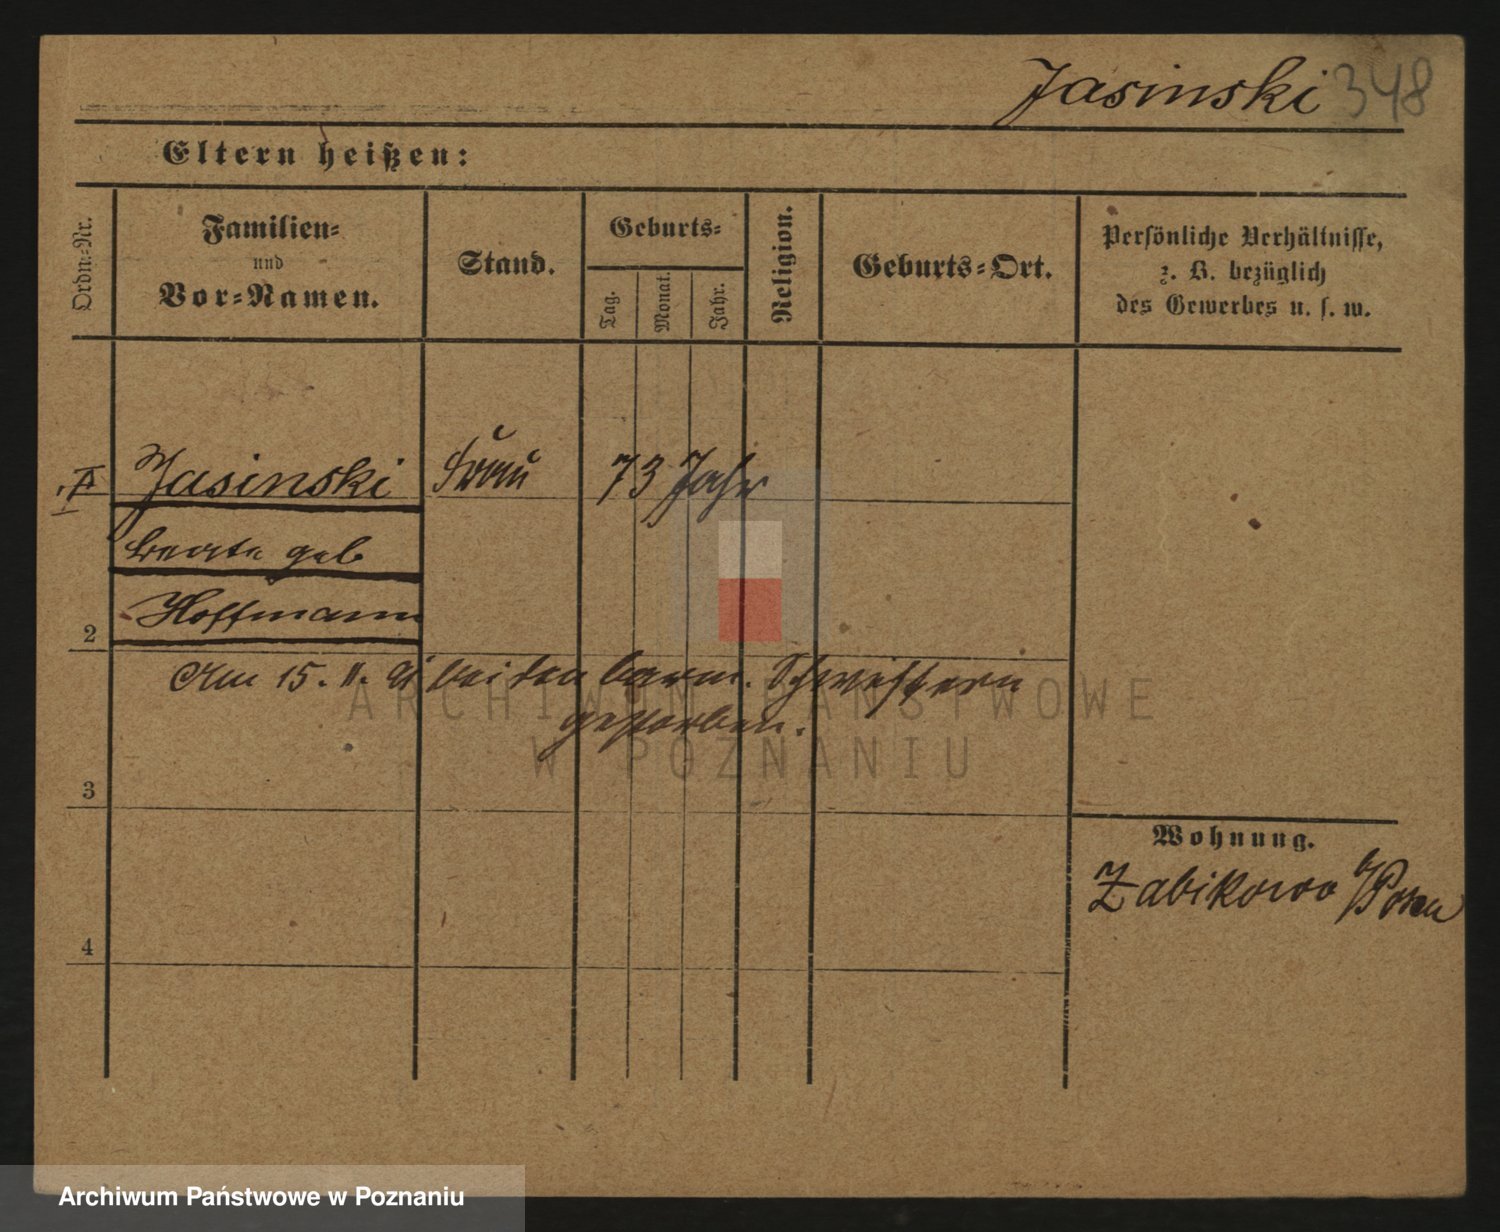 Jasinski 348
Eltern heißen:
Ordn.-Nr.
Familien-
und
Vor-Namen.
Stand.
Geburts-
Tag.
Monat.
Jahr.
Religion.
Geburts-Ort.
Persönliche Verhältnisse,
z. B. bezüglich
des Gewerbes u. s. w.
Jasinski Frau 73 Jahr
Beate geb
Hoffmann
2
Am 15. 11. bei den barm. Schwestern
gestorben.
3
Wohnung.
Zabikowo b/Posen
4
ARCHIWUM PAŃSTWOWE
W POZNANIU
Archiwum Państwowe w Poznaniu